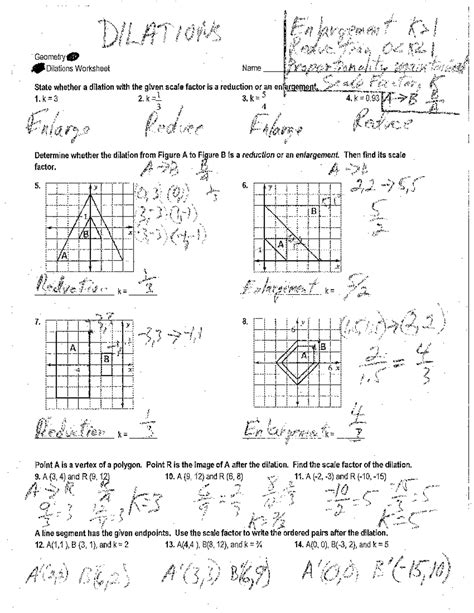 DILATIONS
Enlargement K>1
Reduction 0<K<1
Proportionality maintained
Scale Factor K
A→B B/A
Geometry
Dilations Worksheet
Name
State whether a dilation with the given scale factor is a reduction or an enlargement.
1. k = 3
2. k = 1/3
3. k = 5/4
4. k = 0.93
Enlarge
Reduce
Enlarge
Reduce
Determine whether the dilation from Figure A to Figure B is a reduction or an enlargement. Then find its scale
factor.
A→B B/A
A→B
5.
y
1
B
A
x
Reduction k = 1/3
6.
2,2 → 5,5
5/2
y
B
A
x
Enlargement k = 5/2
7.
-3,3 → -1,1
y
A
B
x
Reduction k = 1/3
8.
(1.5,1.5)→(2,2)
2/1.5 = 4/3
6
y
A
B
6 x
Enlargement k = 4/3
Point A is a vertex of a polygon. Point R is the image of A after the dilation. Find the scale factor of the dilation.
9. A (3, 4) and R (9, 12)
10. A (9, 12) and R (6, 8)
11. A (-2, -3) and R (-10, -15)
A → R
9/3 = 3
12/4 = 3
K=3
6/9 = 2/3
8/12 = 2/3
K=2/3
-10/-2 = 5
-15/-3 = 5
K=5
A line segment has the given endpoints. Use the scale factor to write the ordered pairs after the dilation.
12. A(1,1 ), B (3, 1), and k = 2
13. A(4,4 ), B(8, 12), and k = ¾
14. A(0, 0), B(-3, 2), and k = 5
A'(2,2) B'(6,2)
A'(3,3) B'(6,9)
A'(0,0) B'(-15,10)